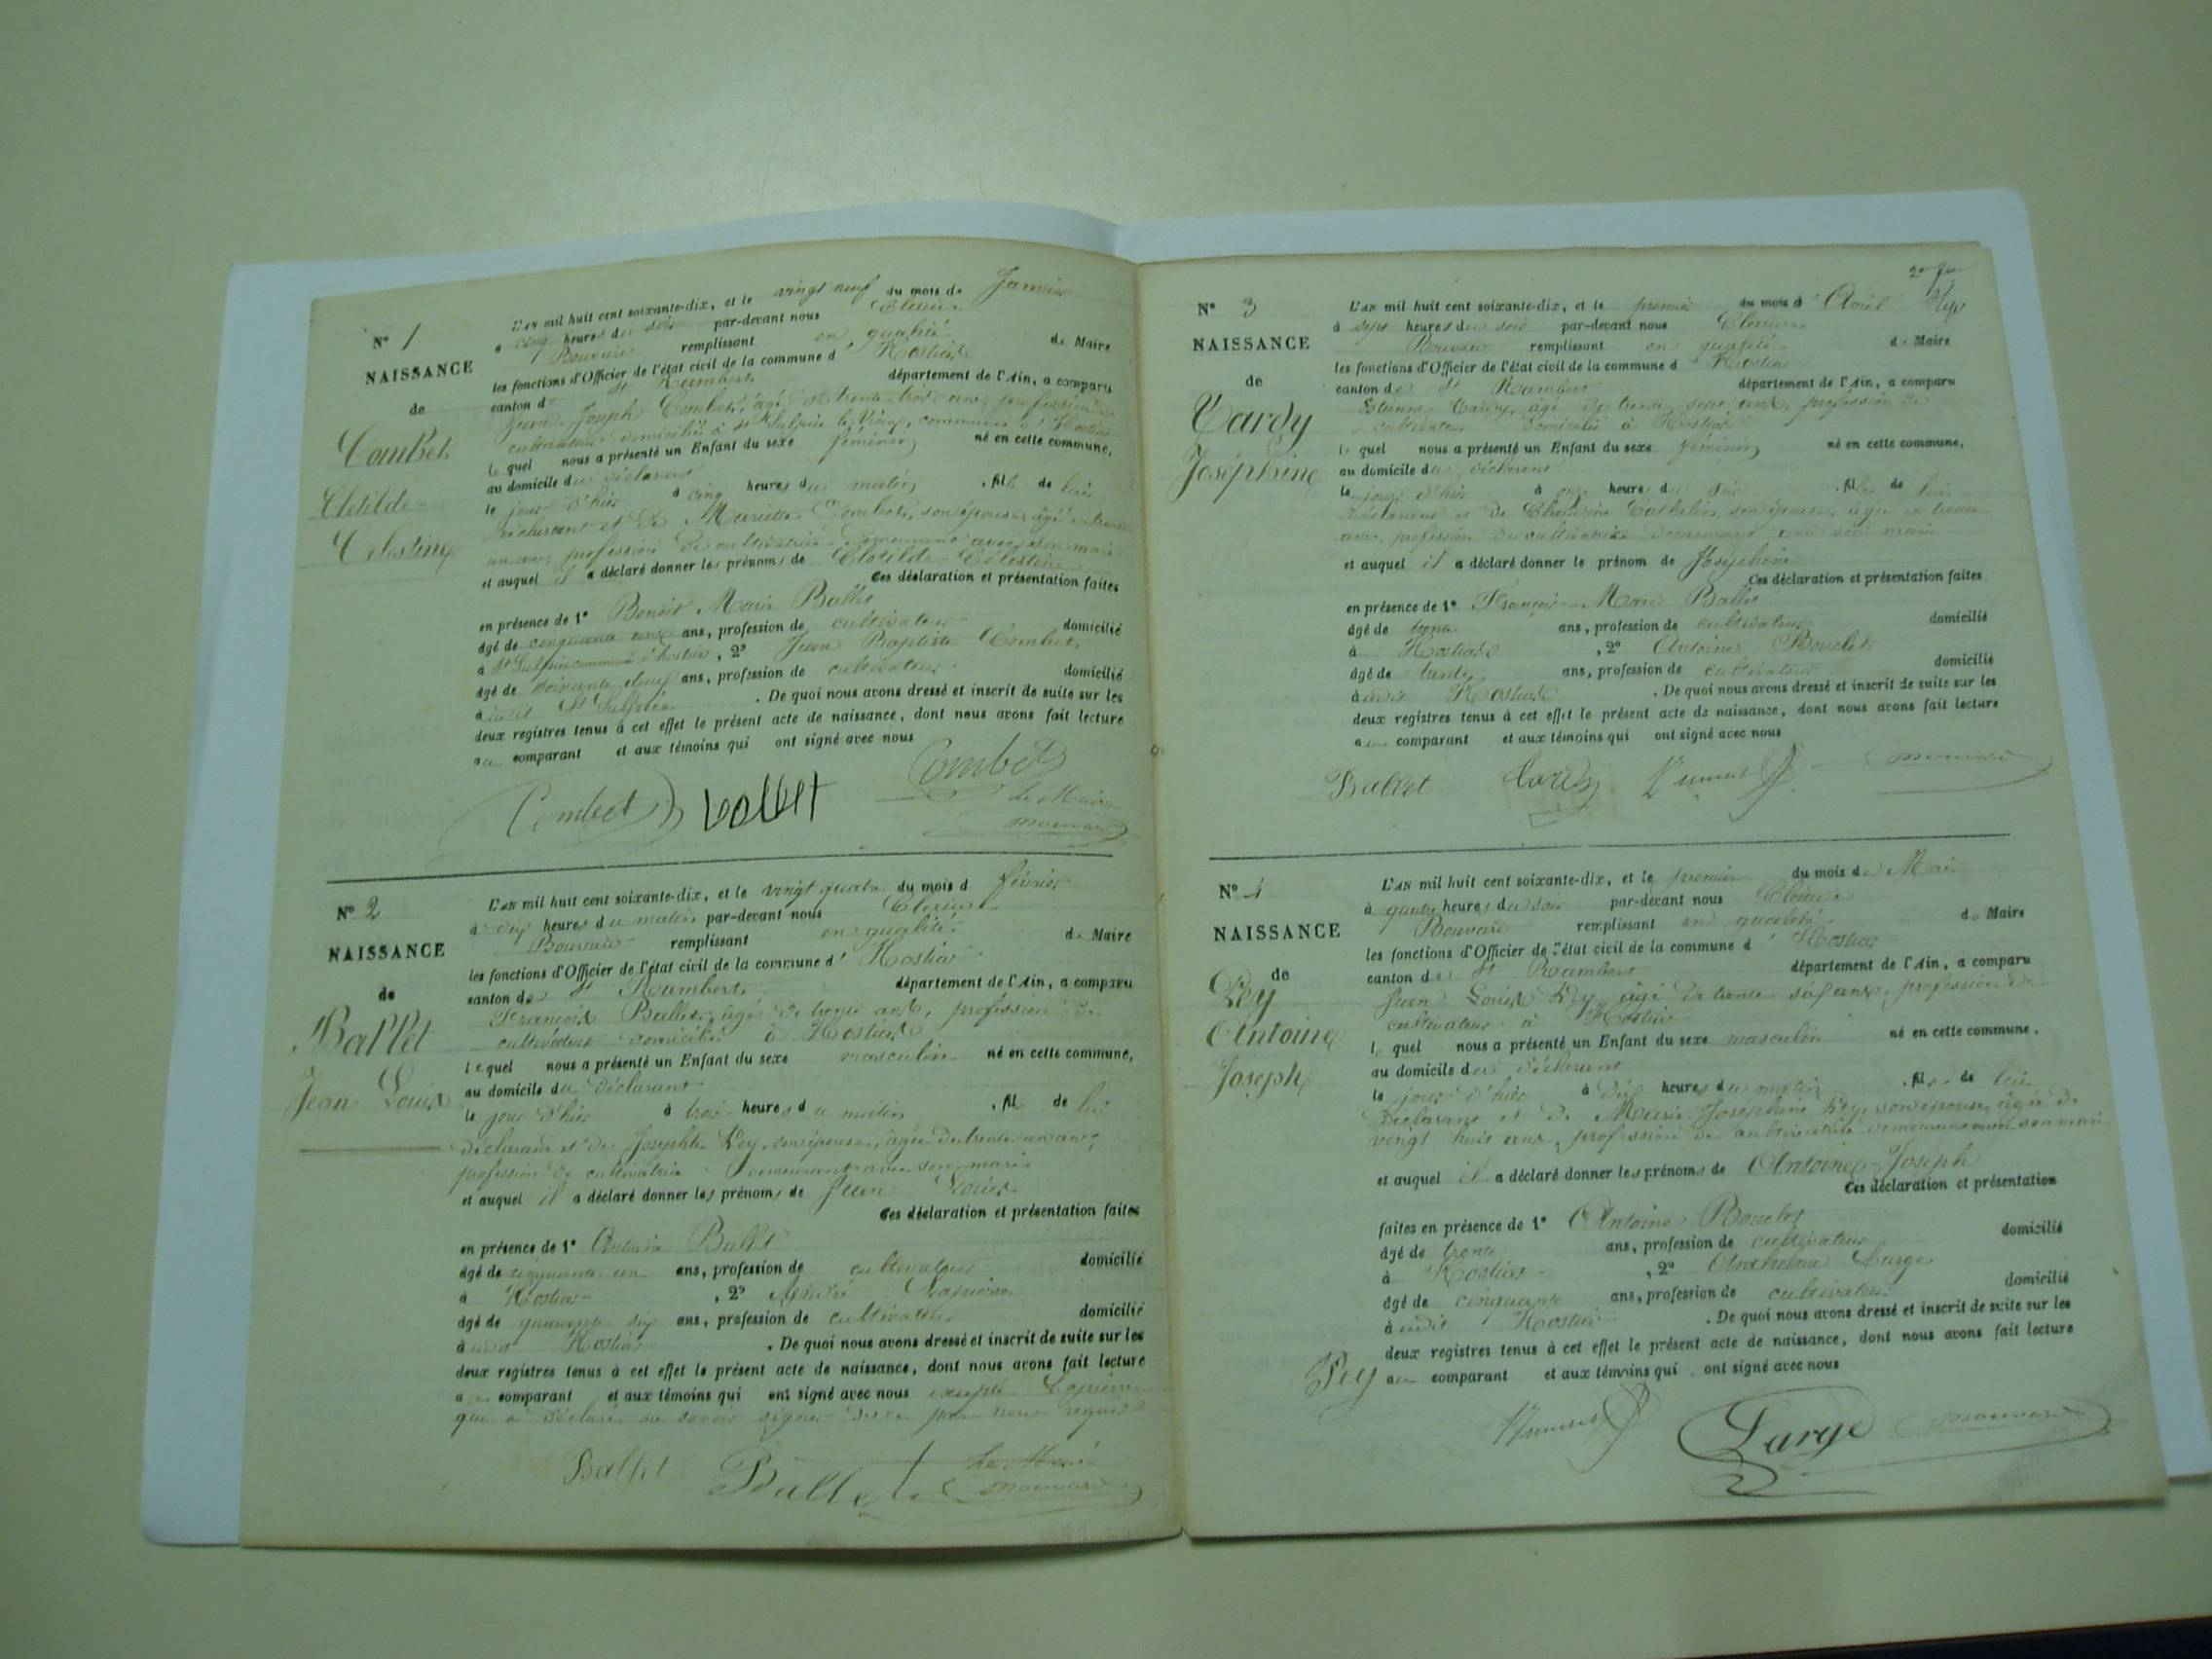 N° 1
NAISSANCE
de
Combet
Clotilde
Célestine
L'AN mil huit cent soixante-dix, et le vingt neuf du mois de Janvier
à cinq heures du soir par-devant nous
Bouvard remplissant en qualité de Maire
les fonctions d'Officier de l'état civil de la commune d'Hostias
canton de St Rambert département de l'Ain, a comparu
Jean Joseph Combet, âgé de trente trois ans, profession de
cultivateur domicilié à St Sulpice le Vieux, commune d'Hostias
lequel nous a présenté un Enfant du sexe féminin né en cette commune,
au domicile du déclarant
le jour d'hier à cinq heures du matin, fille de lui
déclarant et de Mariette Combet, son épouse âgée de trente
un ans, profession de cultivatrice demeurant avec son mari
et auquel il a déclaré donner les prénoms de Clotilde Célestine
Ces déclaration et présentation faites
en présence de 1° Benoit Marie Ballet
âgé de cinquante ans, profession de cultivateur domicilié
à St Sulpice commune d'hostias, 2° Jean Baptiste Combet
âgé de soixante neuf ans, profession de cultivateur domicilié
à St Sulpice. De quoi nous avons dressé et inscrit de suite sur les
deux registres tenus à cet effet le présent acte de naissance, dont nous avons fait lecture
au comparant et aux témoins qui ont signé avec nous
Combet
Combet ballet
le Maire
N° 2
NAISSANCE
de
Ballet
Jean Louis
L'AN mil huit cent soixante-dix, et le vingt quatre du mois d février
à dix heures du matin par-devant nous
Bouvard remplissant en qualité de Maire
les fonctions d'Officier de l'état civil de la commune d'Hostias
canton de St Rambert département de l'Ain, a comparu
François Ballet, âgé de trente ans, profession de
cultivateur domicilié à Hostias
lequel nous a présenté un Enfant du sexe masculin né en cette commune,
au domicile du déclarant
le jour d'hier à trois heures du matin, fils de lui
déclarant et de Josephte Pey, son épouse, âgée de trente un ans,
profession de cultivatrice demeurant avec son mari
et auquel il a déclaré donner les prénoms de Jean Louis
Ces déclaration et présentation faites
en présence de 1° Antoine Ballet
âgé de cinquante un ans, profession de cultivateur domicilié
à Hostias, 2° André
âgé de quarante six ans, profession de cultivateur domicilié
à Hostias. De quoi nous avons dressé et inscrit de suite sur les
deux registres tenus à cet effet le présent acte de naissance, dont nous avons fait lecture
au comparant et aux témoins qui ont signé avec nous excepté
qui a déclaré ne savoir signer de ce par nous requis
Ballet Ballet
Le Maire
N° 3
NAISSANCE
de
Cardy
Joséphine
L'AN mil huit cent soixante-dix, et le premier du mois d'Avril
à sept heures du soir par-devant nous
Bouvard remplissant en qualité de Maire
les fonctions d'Officier de l'état civil de la commune d'Hostias
canton de St Rambert département de l'Ain, a comparu
Cardy, âgé de trente sept ans, profession de
cultivateur domicilié à Hostias
lequel nous a présenté un Enfant du sexe féminin né en cette commune,
au domicile du déclarant
le jour d'hier à onze heures du soir, fille de lui
déclarant et de Claudine son épouse, âgée de trente
ans, profession de cultivatrice demeurant avec son mari
et auquel il a déclaré donner le prénom de Joséphine
Ces déclaration et présentation faites
en présence de 1° François Marie Ballet
âgé de trente ans, profession de cultivateur domicilié
à Hostias, 2° Antoine Bouclet
âgé de trente ans, profession de cultivateur domicilié
à Hostias. De quoi nous avons dressé et inscrit de suite sur les
deux registres tenus à cet effet le présent acte de naissance, dont nous avons fait lecture
au comparant et aux témoins qui ont signé avec nous
Ballet Cardy
N° 4
NAISSANCE
de
Pey
Antoine
Joseph
L'AN mil huit cent soixante-dix, et le premier du mois de Mai
à quatre heures du soir par-devant nous
Bouvard remplissant en qualité de Maire
les fonctions d'Officier de l'état civil de la commune d'Hostias
canton de St Rambert département de l'Ain, a comparu
Jean Louis Pey âgé de trente six ans, profession de
cultivateur à Hostias
lequel nous a présenté un Enfant du sexe masculin né en cette commune,
au domicile du déclarant
le jour d'hier à dix heures du matin, fils de lui
déclarant et de Marie Joséphine Pey, son épouse, âgée de
vingt huit ans, profession de cultivatrice demeurant avec son mari
et auquel il a déclaré donner les prénoms de Antoine Joseph
Ces déclaration et présentation
faites en présence de 1° Antoine Bouclet
âgé de trente ans, profession de cultivateur domicilié
à Hostias, 2° Anthelme Large
âgé de cinquante ans, profession de cultivateur domicilié
à Hostias. De quoi nous avons dressé et inscrit de suite sur les
deux registres tenus à cet effet le présent acte de naissance, dont nous avons fait lecture
au comparant et aux témoins qui ont signé avec nous
Pey
Large